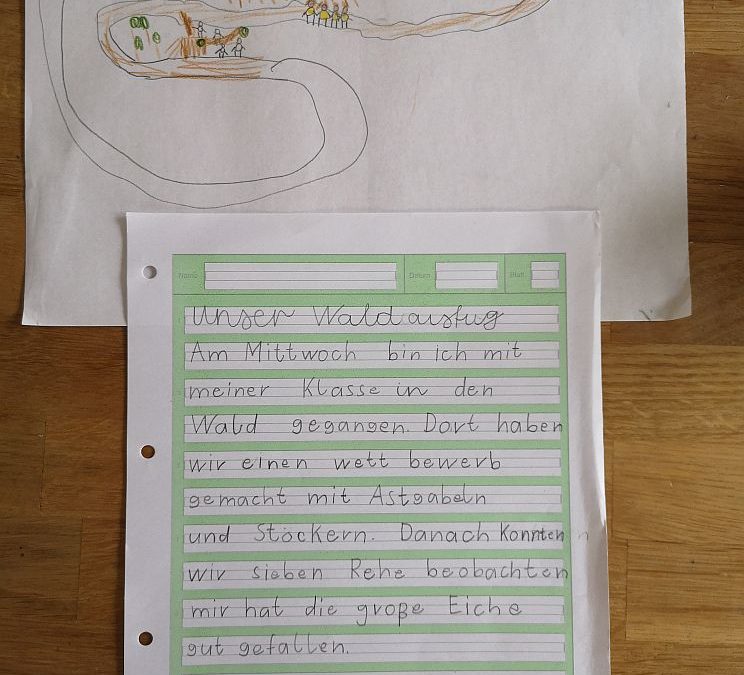 Name
Datum
Blatt
Unser Waldausfug
Am Mittwoch bin ich mit
meiner Klasse in den
Wald gegangen. Dort haben
wir einen wett bewerb
gemacht mit Astgabeln
und Stöckern. Danach Konnten
wir sieben Rehe beobachten
mir hat die große Eiche
gut gefallen.